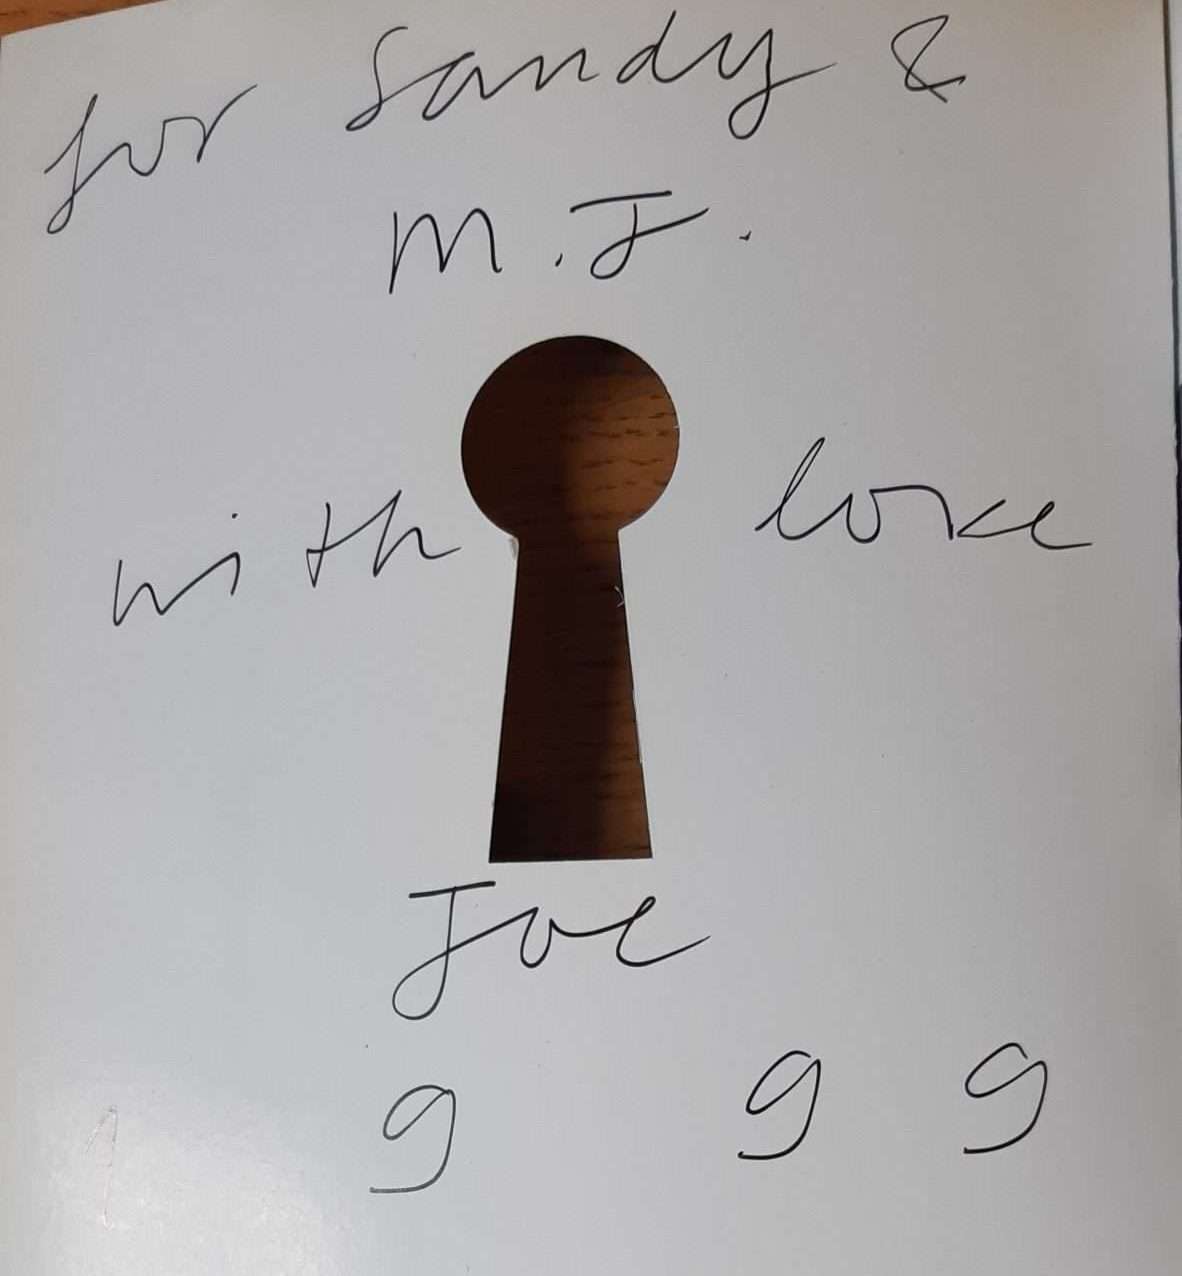 for Sandy &
M.J.
with love
Joe
1 9 9 9